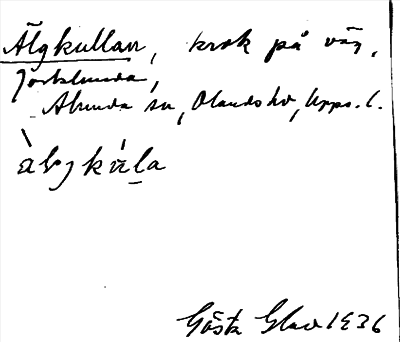 Älgkullan, krok på väg,
Jorklunda,
Alunda sn, Olands hd, Upps. l.
Gösta Glav 1936